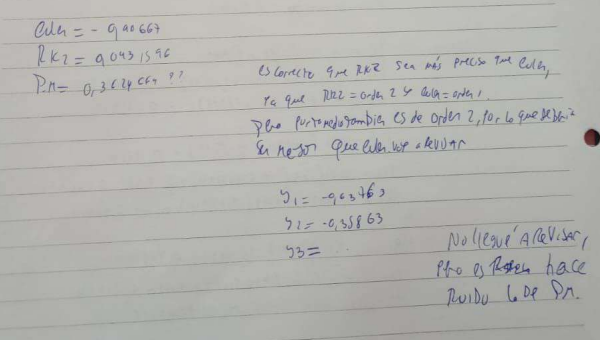 Euler = - 0,90667
RK2 = 0,0431596
P.M = 0,3624664 ??
es correcto que RK2 sea más preciso que Euler,
ya que RK2 = orden 2 y Euler = orden 1.
pero punto medio tambien es de orden 2, por lo que debería
ser mejor que Euler voy a revisar
y1 = -0,03763
y2 = -0,35863
y3 =
No llegué A revisar,
pero es hace
Ruido lo de P.M.